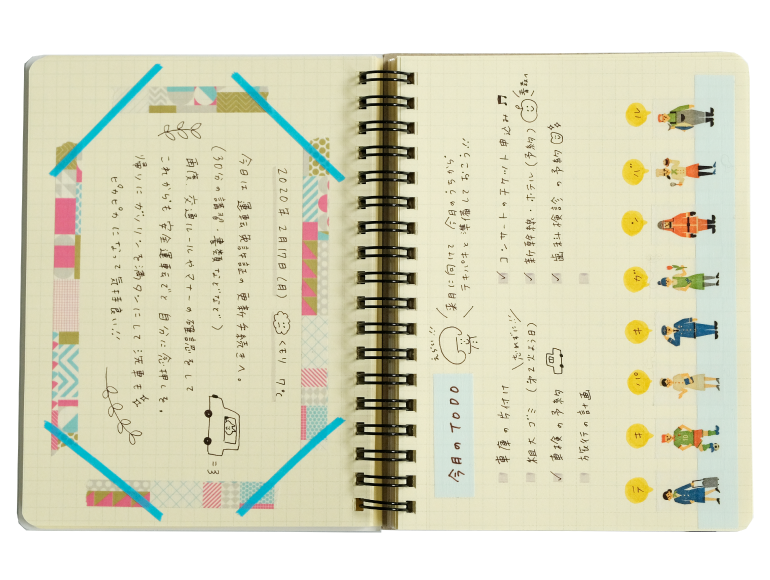 2020年2月17日(月) くもり 7℃
今日は 運転免許証の更新手続きへ。
(30分の講習・書類などなど)
再度、交通ルールやマナーの確認をして
これからも安全運転でと自分に念押しする。
帰りにガソリンを満タンにして洗車も
ピカピカになって気持ち良い!!
今日のTODO
来月に向けて 今月のうちから
テキパキと準備しておこう!!
車庫の片付け
粗大ゴミ (第2火よう日)
車検の予約
旅行の計画
コンサートのチケット申込み
新幹線・ホテル(予約)
歯科検診の予約
テキパキガンバル